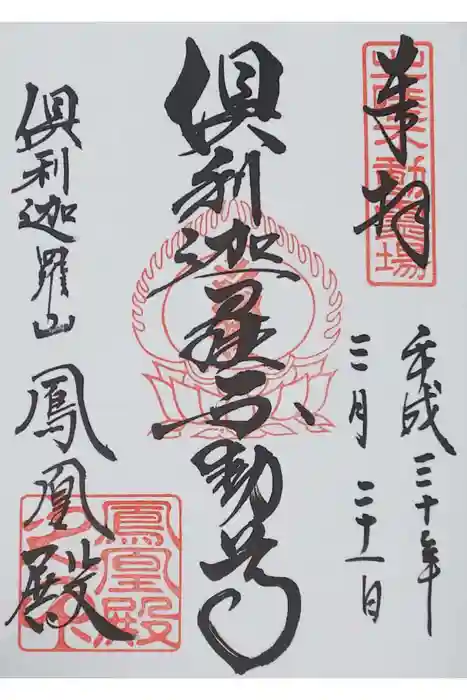 奉拝
北陸不動霊場
平成三十年
三月二十一日
倶利迦羅不動尊
倶利迦羅山
鳳凰殿
鳳凰殿